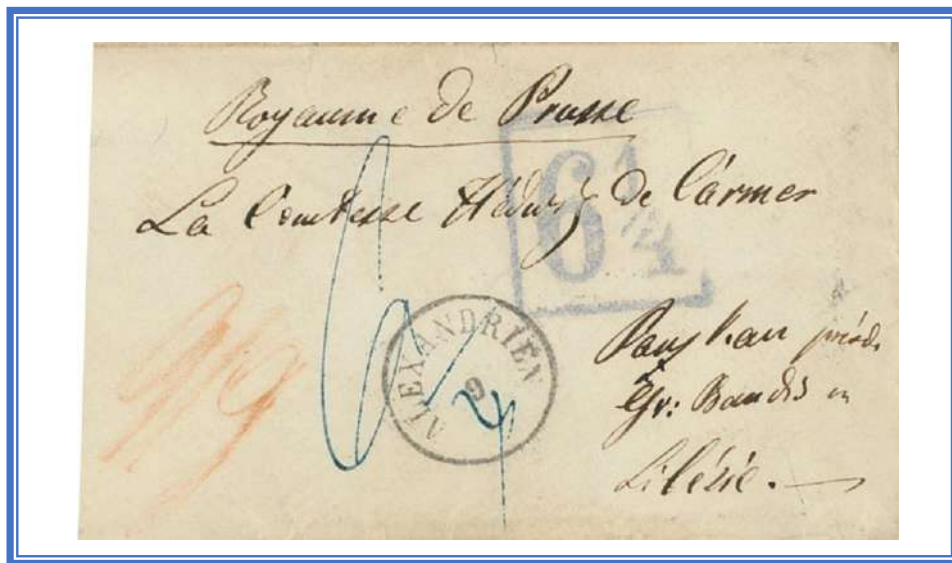 Royaume de Prusse
La Comtesse Hedwig de Carmer
6 1/4
ALEXANDRIEN
9
près de
Gr: Baudis en
Silésie.